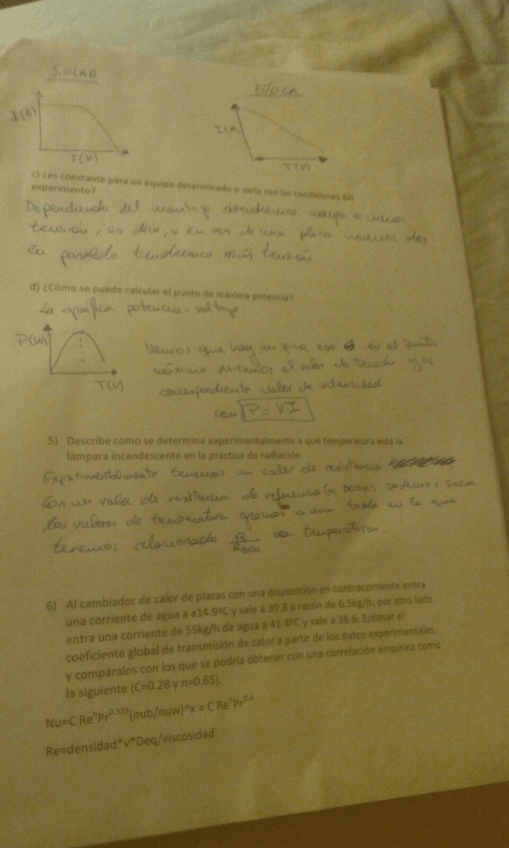 SOLAR
EÓLICA
I(A)
I(A)
T(V)
T(V)
c) ¿es constante para un equipo determinado o varía con las condiciones del
experimento?
Dependiendo del montaje obtendremos mayor o menor
tensión, es decir, si en vez de una placa usamos dos
en paralelo tendremos más tensión
d) ¿Cómo se puede calcular el punto de máxima potencia?
La gráfica potencia-voltaje
P(W)
T(V)
Vemos que hay un pico ese es el punto
máximo. Miramos el valor de tensión y su
correspondiente valor de intensidad
con P=VI
5) Describe como se determina experimentalmente a qué temperatura está la
lámpara incandescente en la práctica de radiación
Experimentalmente tenemos un valor de resistencia
Con un valor de resistencia de referencia podemos sacar
los valores de temperatura gracias a una tabla en la que
tenemos relacionado con temperaturas
6) Al cambiador de calor de placas con una disposición en contracorriente entra
una corriente de agua a a14.9ºC y sale a 39.8 a razón de 6.5kg/h; por otro lado
entra una corriente de 55kg/h de agua a 41.4ºC y sale a 38.6. Estimar el
coeficiente global de transmisión de calor a partir de los datos experimentales,
y compáralos con los que se podría obtener con una correlación empírica como
la siguiente (C=0.28 y n=0.65).
Nu=C Re^nPr^0.333(nub/nuw)^x = C Re^nPr^0.4
Re=densidad*v*Deq/viscosidad